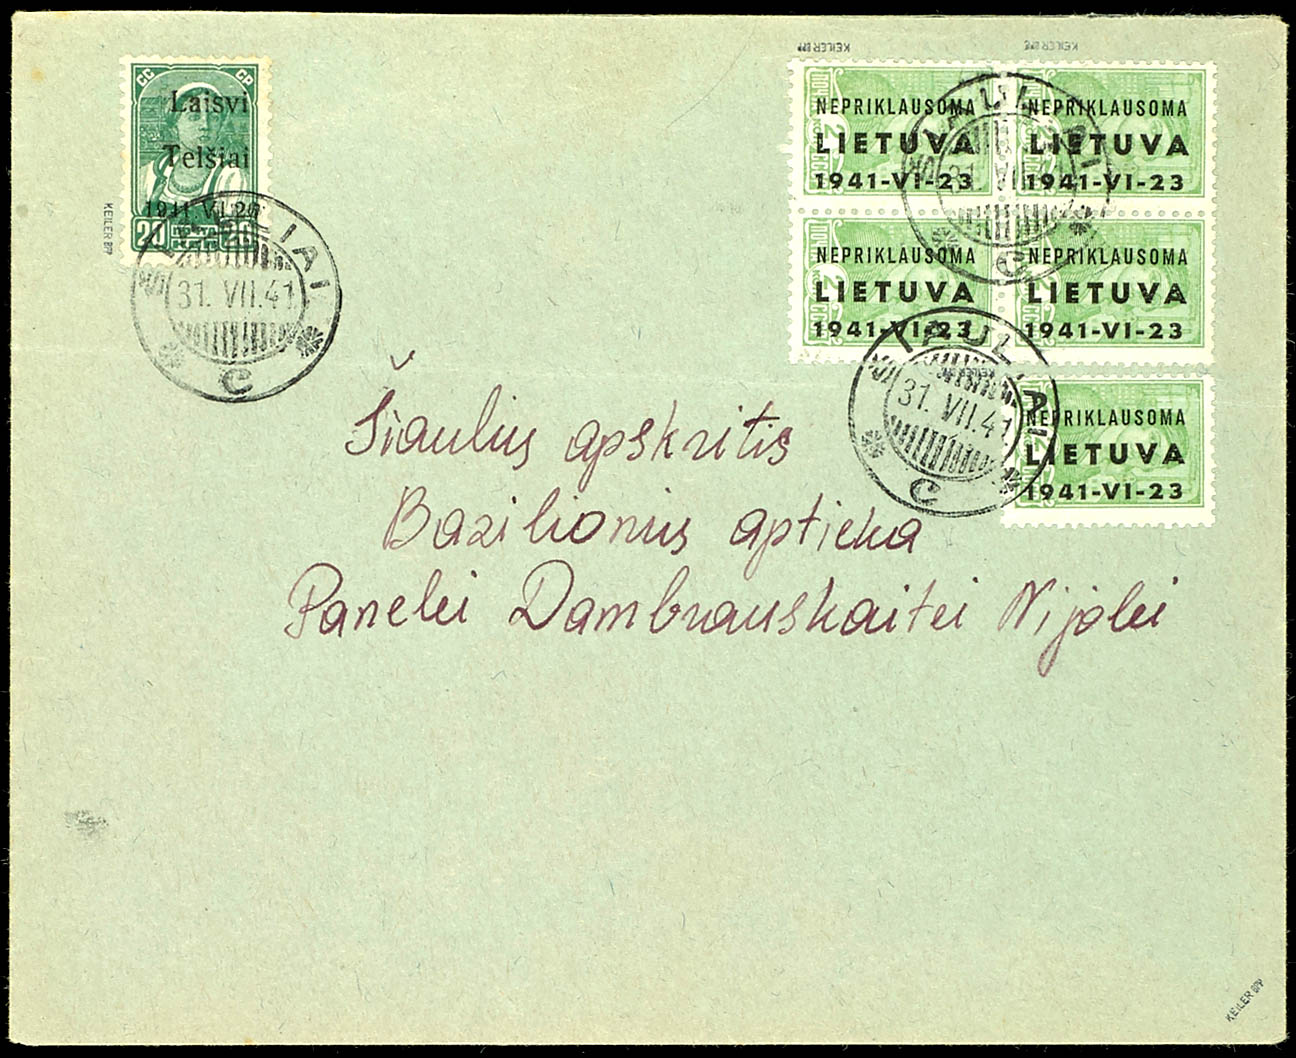 KEILER BPP
KEILER BPP
CC CP
Laisvi
Telšiai
1941.VI.26
20 20
KEILER BPP
NEPRIKLAUSOMA
LIETUVA
1941-VI-23
NEPRIKLAUSOMA
LIETUVA
1941-VI-23
NEPRIKLAUSOMA
LIETUVA
1941-VI-23
NEPRIKLAUSOMA
LIETUVA
1941-VI-23
NEPRIKLAUSOMA
LIETUVA
1941-VI-23
ŠIAULIAI
31. VII.41
C
ŠIAULIAI
31. VII
C
ŠIAULIAI
31. VII.41
C
Šiaulius apskritis
Bazilionius aptieka
Panelei Dambrauskaitei Nijolei
KEILER BPP